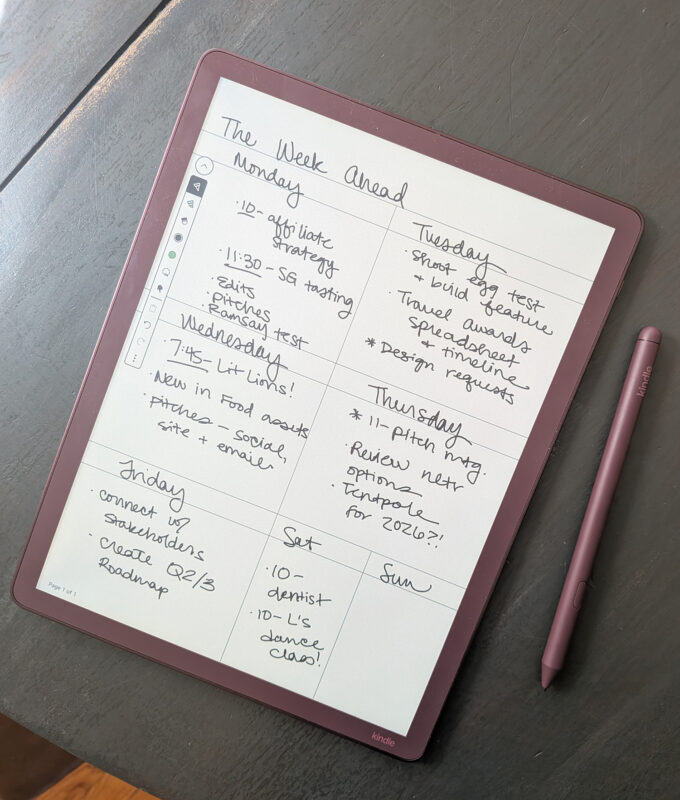 The Week Ahead
Monday
10- affiliate
strategy
· 11:30 - SG tasting
· Edits
· Pitches
· Ramsay test
Tuesday
· Shoot egg test
+ build feature
· Travel awards
Spreadsheet
+ timeline
* Design requests
Wednesday
· 7:45- Lit Lions!
· New in Food assets
· pitches - social,
site + email
Thursday
* 11- Pitch mtg.
· Review netr
options
· Tentpole
for 2026?!
Friday
· connect w/
stakeholders
· create Q2/3
Roadmap
Sat
· 10-
dentist
· 10- L's
dance
class!
Sun
Page 1 of 1
kindle
kindle